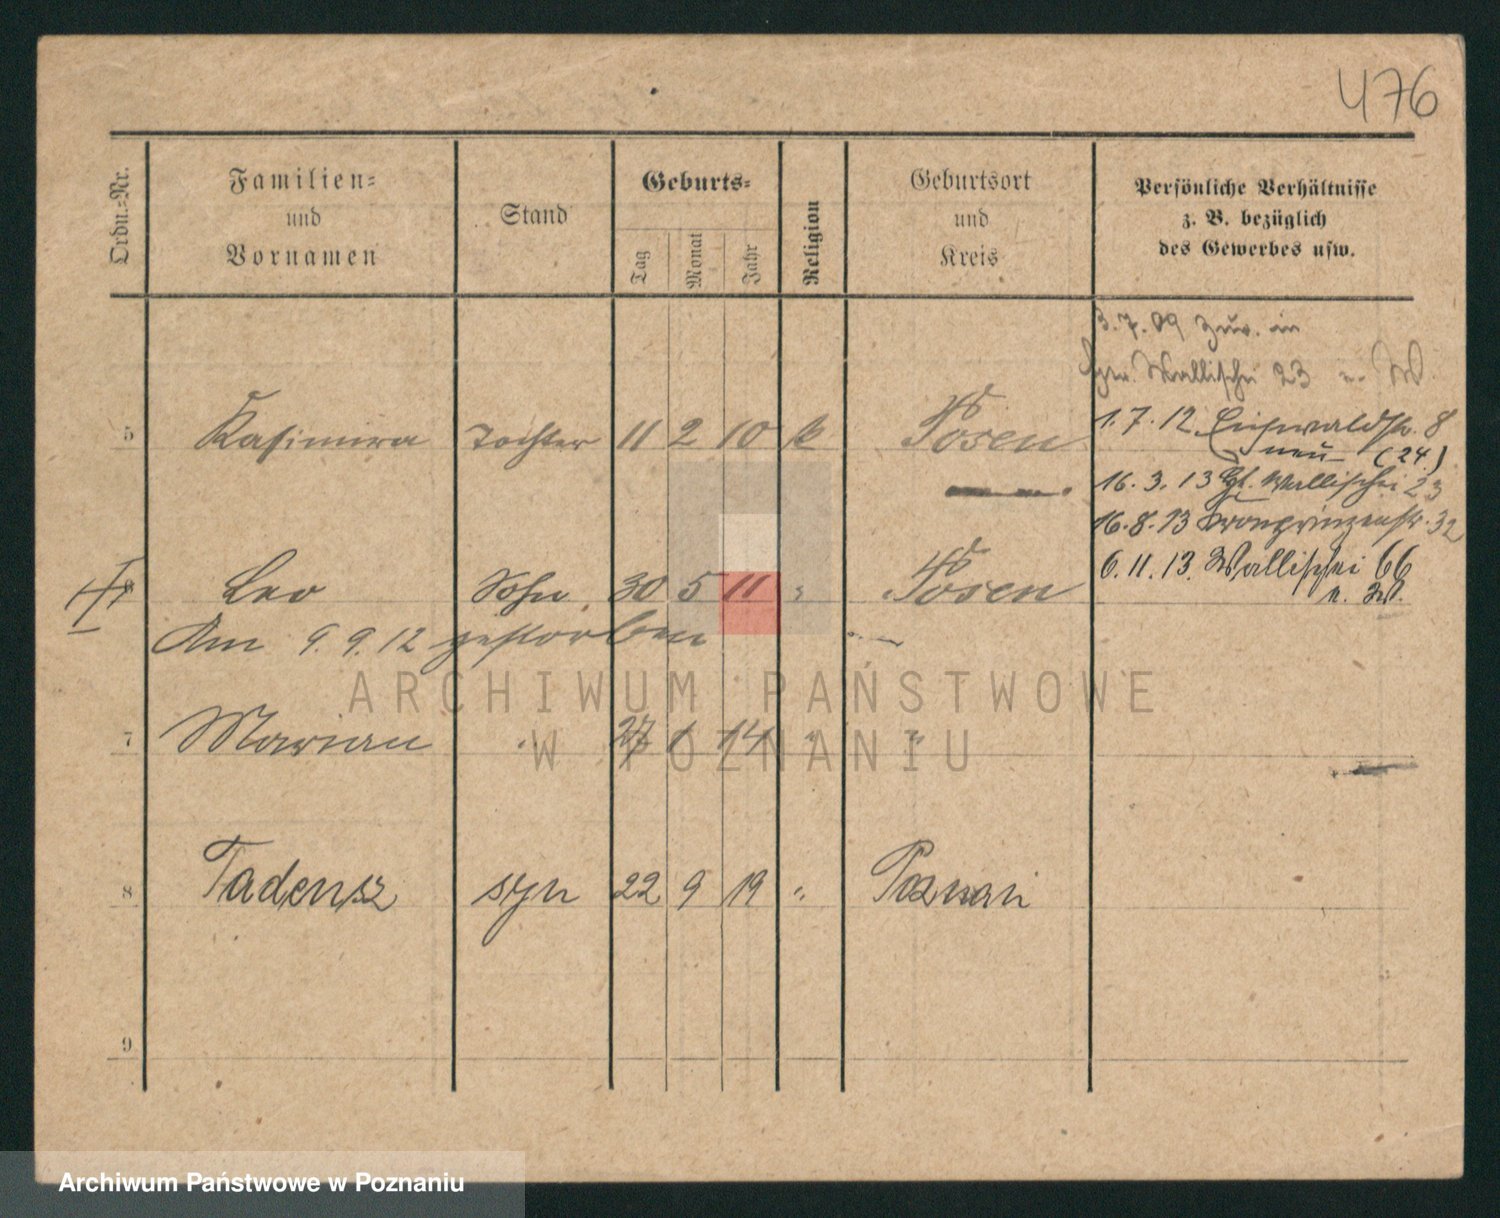 476
Ordn.-Nr.
Familien-
und
Vornamen
Stand
Geburts-
Tag
Monat
Jahr
Religion
Geburtsort
und
Kreis
Persönliche Verhältnisse
z. B. bezüglich
des Gewerbes usw.
3.7.09 Zur. in
Wallischei 23 u. W.
5 Kasimira Tochter 11 2 10 k Posen
1.7.12 Eichwaldstr. 8
neu (24.)
16.3.13 Wallischei 23
16.8.13 Kronprinzenstr. 32
6 Leo Sohn 30 5 11 " Posen
6.11.13. Wallischei 66
u. W.
Am 9.9.12 gestorben
7 Marian " 27 1 14 " "
8 Tadeusz syn 22 9 19 " Poznań
9
ARCHIWUM PAŃSTWOWE
W POZNANIU
Archiwum Państwowe w Poznaniu